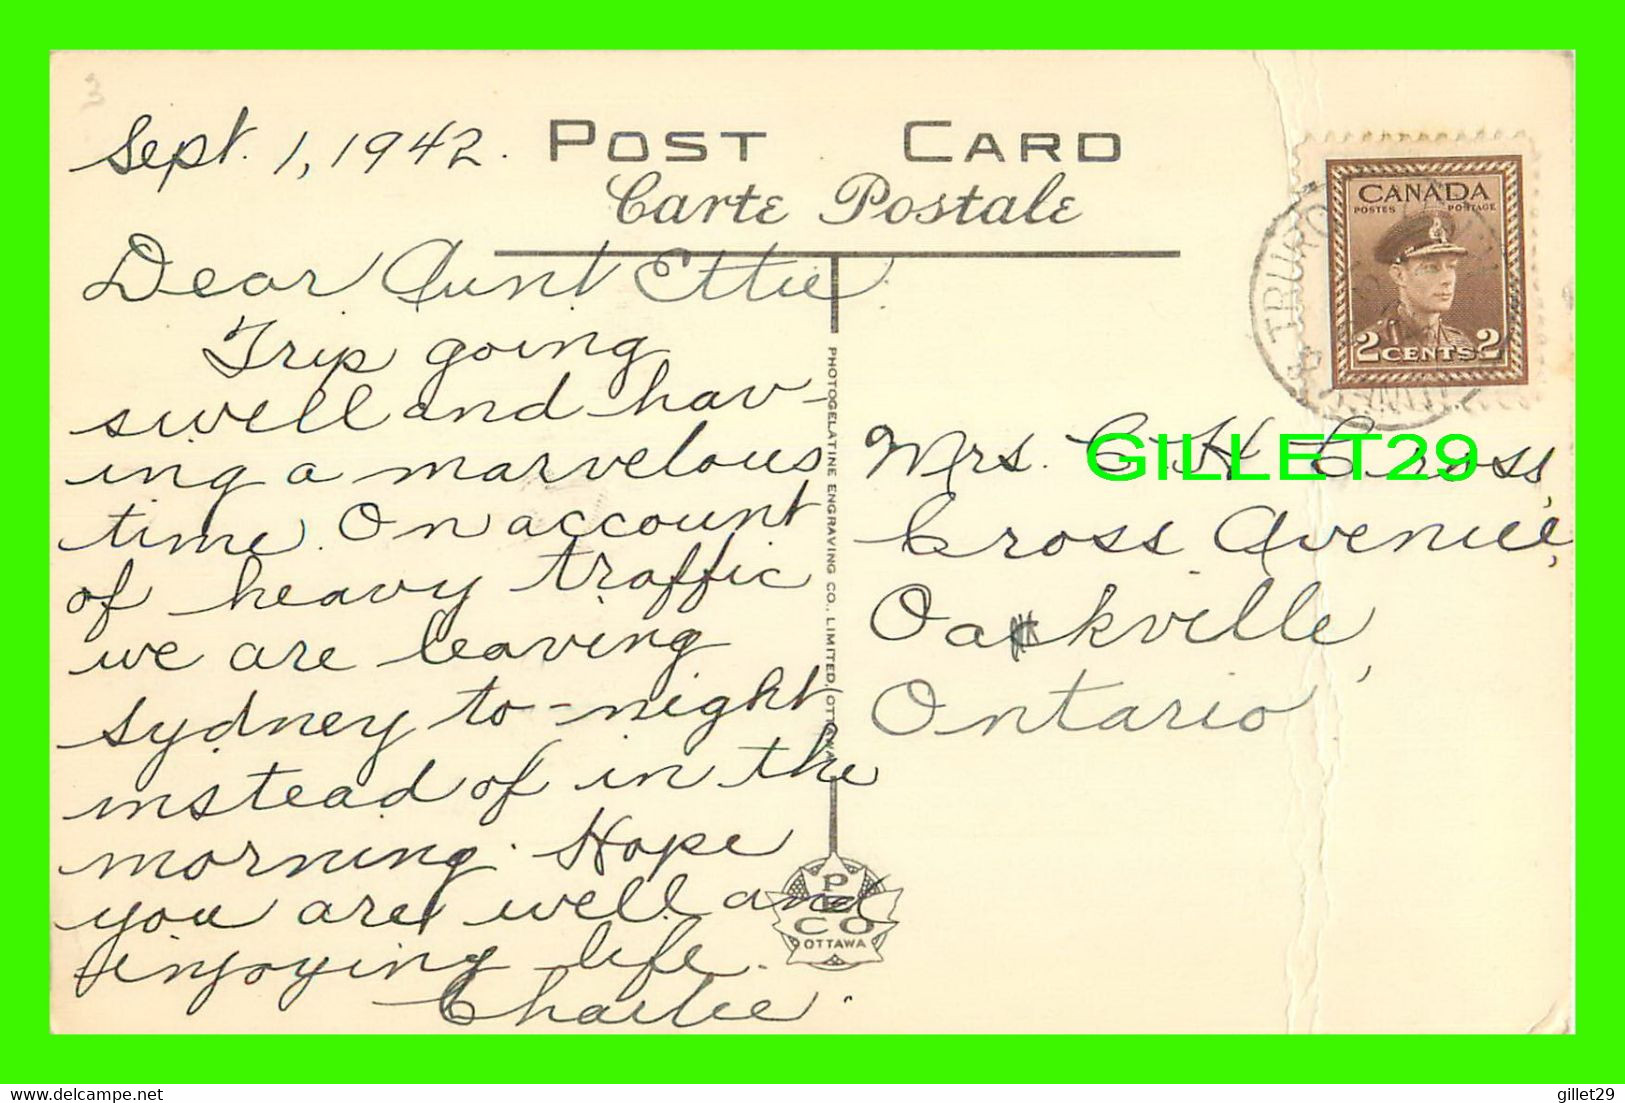 Sept. 1, 1942.
POST CARD
Carte Postale
CANADA
POSTES POSTAGE
2 CENTS 2
TRURO
Dear Aunt Ettie.
Trip going
swell and hav-
ing a marvelous
time. On account
of heavy traffic
we are leaving
Sydney to-night
instead of in the
morning. Hope
you are well and
injoying life.
Charlie.
PHOTOGELATINE ENGRAVING CO., LIMITED, OTTAWA
PECO
OTTAWA
Mrs. C. H. Cross,
Cross Avenue,
Oakville,
Ontario
GILLET29
delcampe.net
gillet29